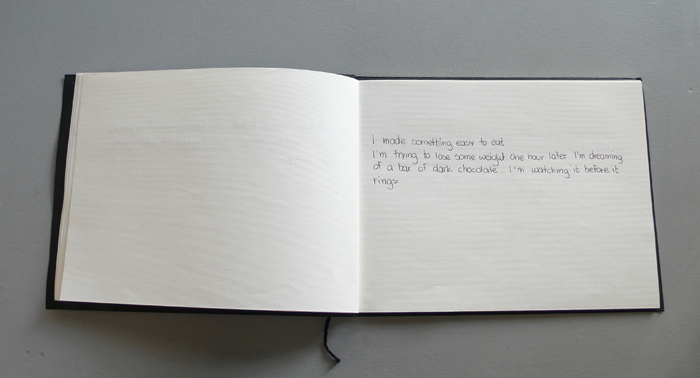 I made something easy to eat
I'm trying to lose some weight one hour later I'm dreaming
of a bar of dark chocolate. I'm watching it before it
rings